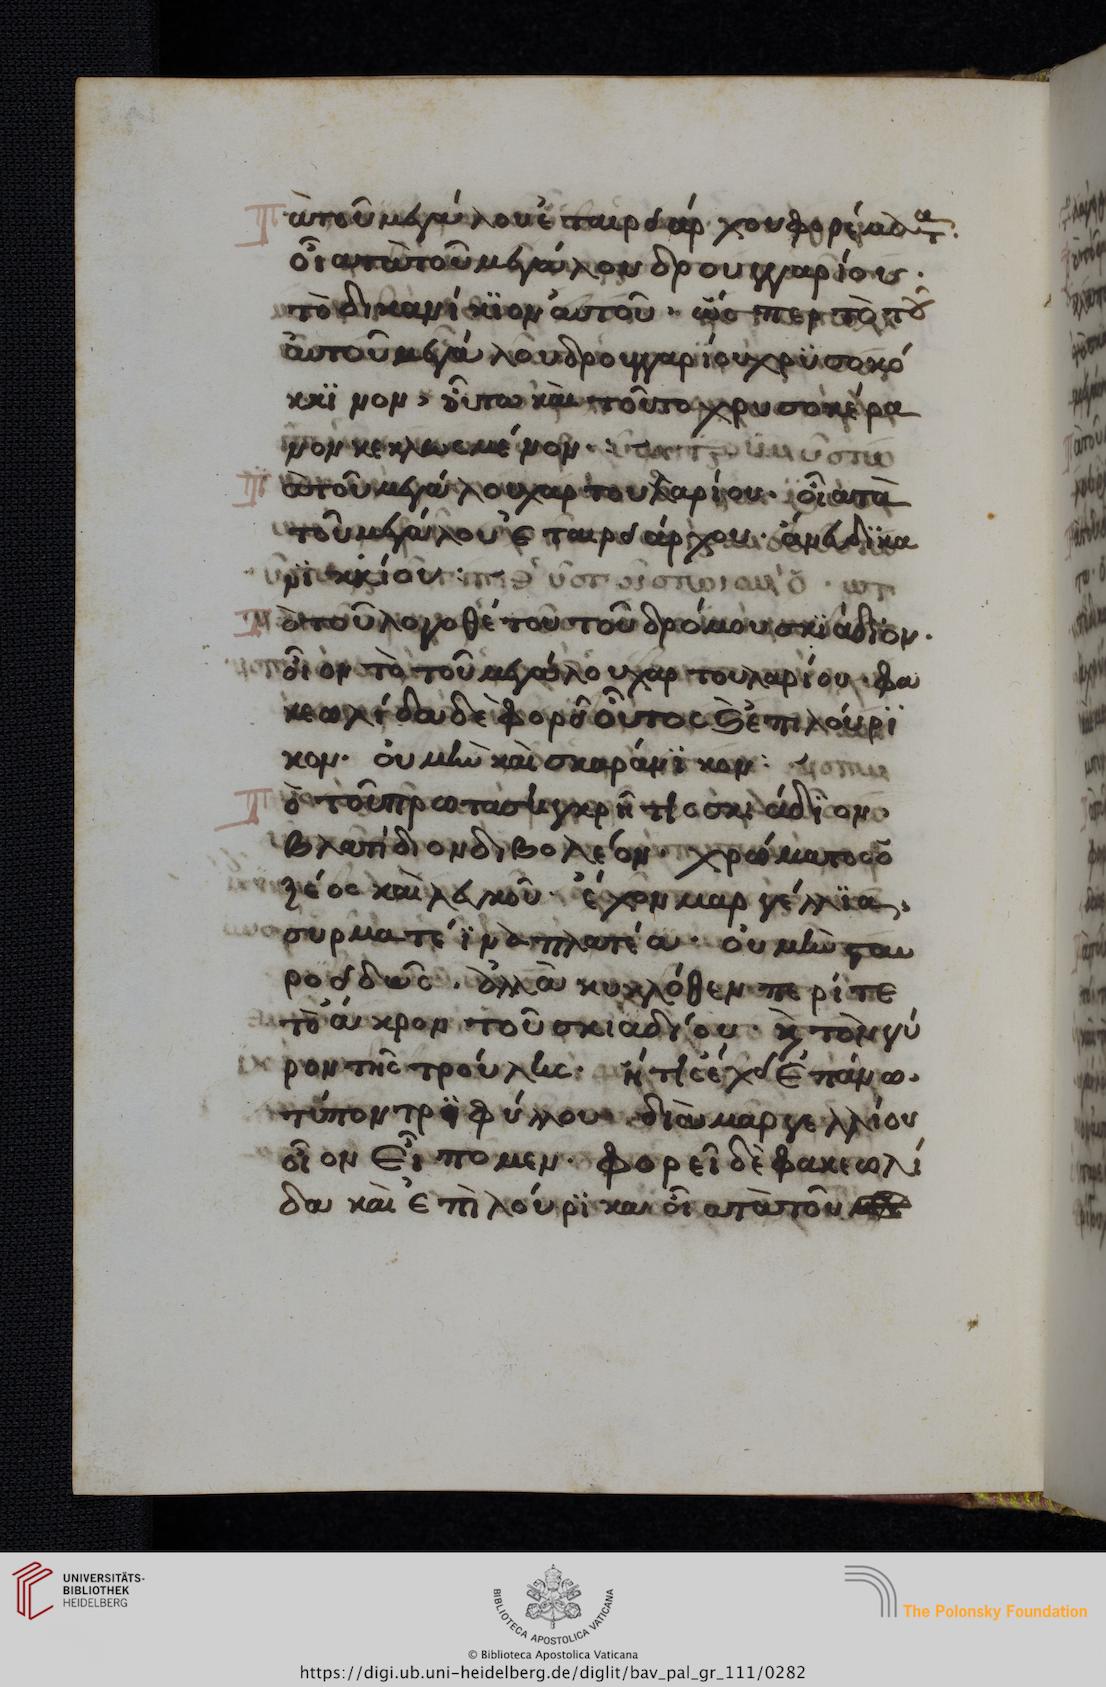 Τὰ τοῦ μεγάλου ἑταιρειάρχου φορέματα.
οἷα τὰ τοῦ μεγάλου δρουγγαρίου.
τὸ δικανίκϊον αὐτοῦ. ὥσπερ τὸ τοῦ
αὐτοῦ μεγάλου δρουγγαρίου χρϋσοκό
κκϊνον, οὕτω καὶ τοῦτο χρυσοκέρα
νον κεκλωσμένον.
Τὰ τοῦ μεγάλου χαρτουλαρίου. οἷα τὰ
τοῦ μεγάλου ἑταιρειάρχου. ἄνευ δϊκα
νϊκκίου
Τὸ τοῦ λογοθέτου τοῦ δρόμου σκϊάδϊον.
οἷον τὸ τοῦ μεγάλου χαρτουλαρίου. φα
κεωλίδα δὲ φορεῖ οὗτος καὶ ἐπιλούρϊ
κον. οὐ μὴν καὶ σκαράνϊκον
Τὸ τοῦ πρωτασϊκρήτις σκιάδϊον.
βλατίδιον διβολέον. χρώματος ὀ
ξέος καὶ λευκοῦ. ἔχον μαργέλλϊα,
συρματέϊνα πλατέα. οὐ μὴν σταυ
ροειδῶς. ἀλλὰ κυκλόθεν περί τε
τὸ ἄκρον τοῦ σκιαδίου. καὶ τὸν γύ
ρον τῆς τρούλης. ἥτις ἔχει ἐπάνω.
τύπον τρϊφύλλου διὰ μαργελλίου
οἷον εἴπομεν. φορεῖ δὲ φακεωλί
δα καὶ ἐπιλούρϊκα οἷα τὰ τοῦ
UNIVERSITÄTS-
BIBLIOTHEK
HEIDELBERG
BIBLIOTECA APOSTOLICA VATICANA
The Polonsky Foundation
© Biblioteca Apostolica Vaticana
https://digi.ub.uni-heidelberg.de/diglit/bav_pal_gr_111/0282